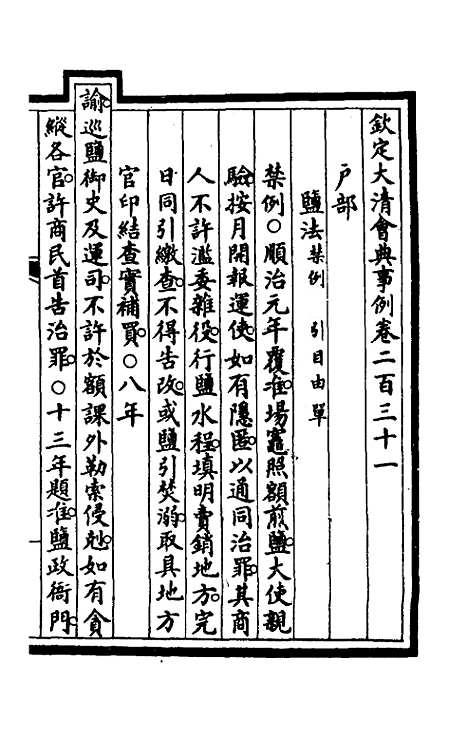 欽定大清會典事例卷二百三十一
戶部
鹽法禁例 引目由單
禁例○順治元年覆准場竈照額煎鹽大使親
驗按月開報運使如有隱匿以通同治罪其商
人不許濫委雜役行鹽水程填明賣銷地方完
日同引繳查不得告改或鹽引焚溺取具地方
官印結查實補買○八年
諭巡鹽御史及運司不許於額課外勒索侵剋如有貪
縱各官許商民首告治罪○十三年題准鹽政衙門